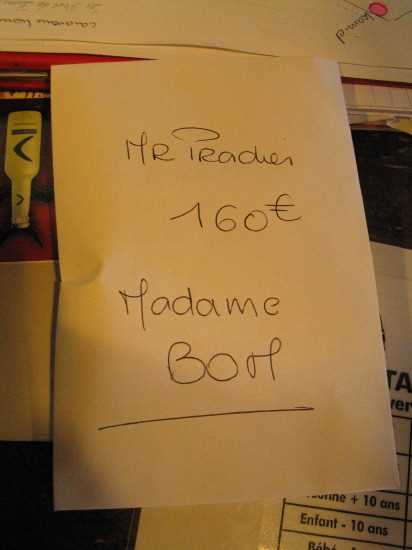 MR Pradier
160€
Madame
BOM
TA
ver
onne + 10 ans
Enfant - 10 ans